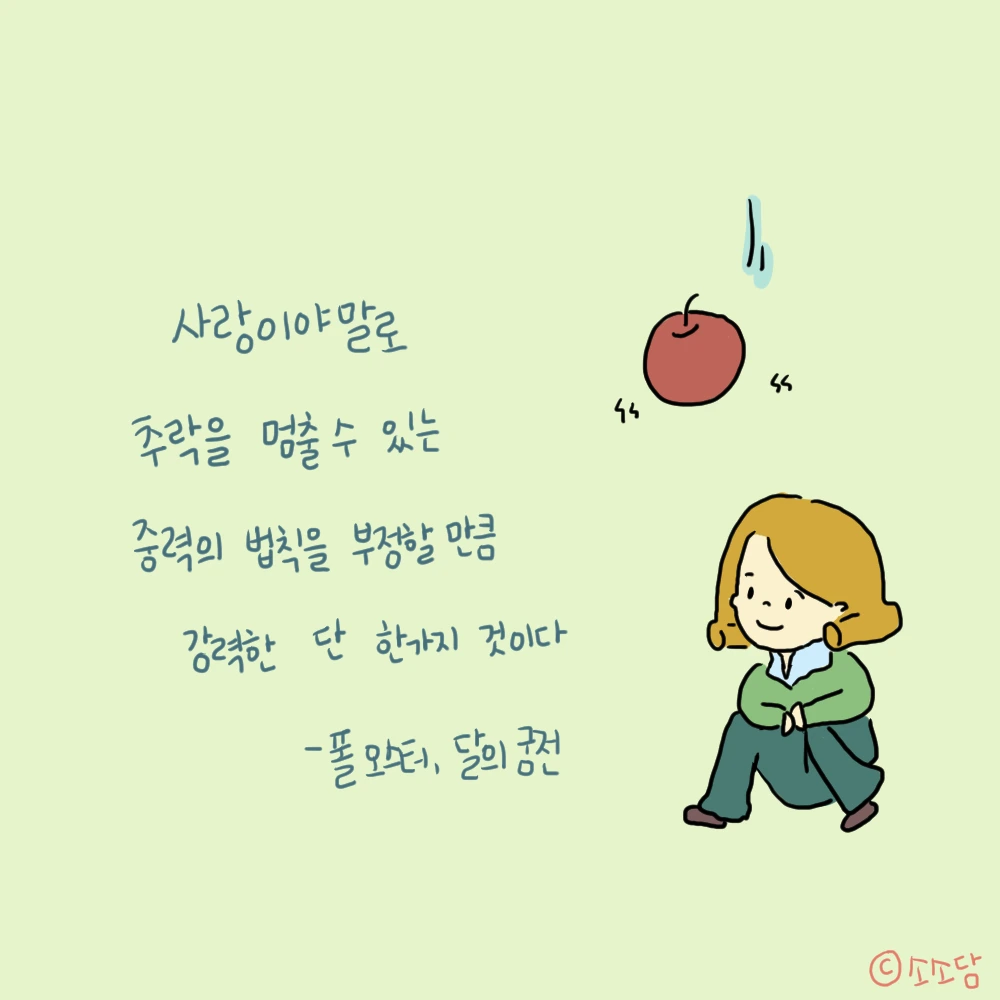 사랑이야말로
추락을 멈출 수 있는
중력의 법칙을 부정할 만큼
강력한 단 한가지 것이다
- 폴 오스터, 달의 궁전
ⓒ 소소담